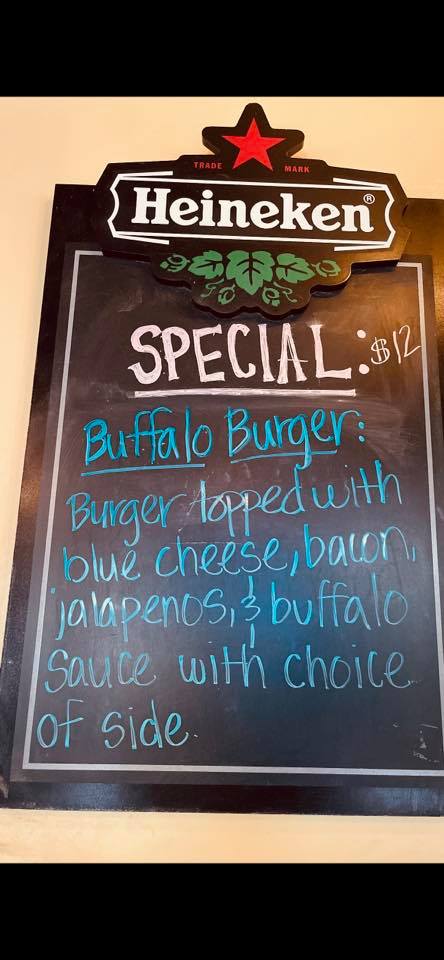 TRADE MARK
Heineken®
SPECIAL: $12
Buffalo Burger:
Burger topped with
blue cheese, bacon,
jalapenos, & buffalo
sauce with choice
of side.